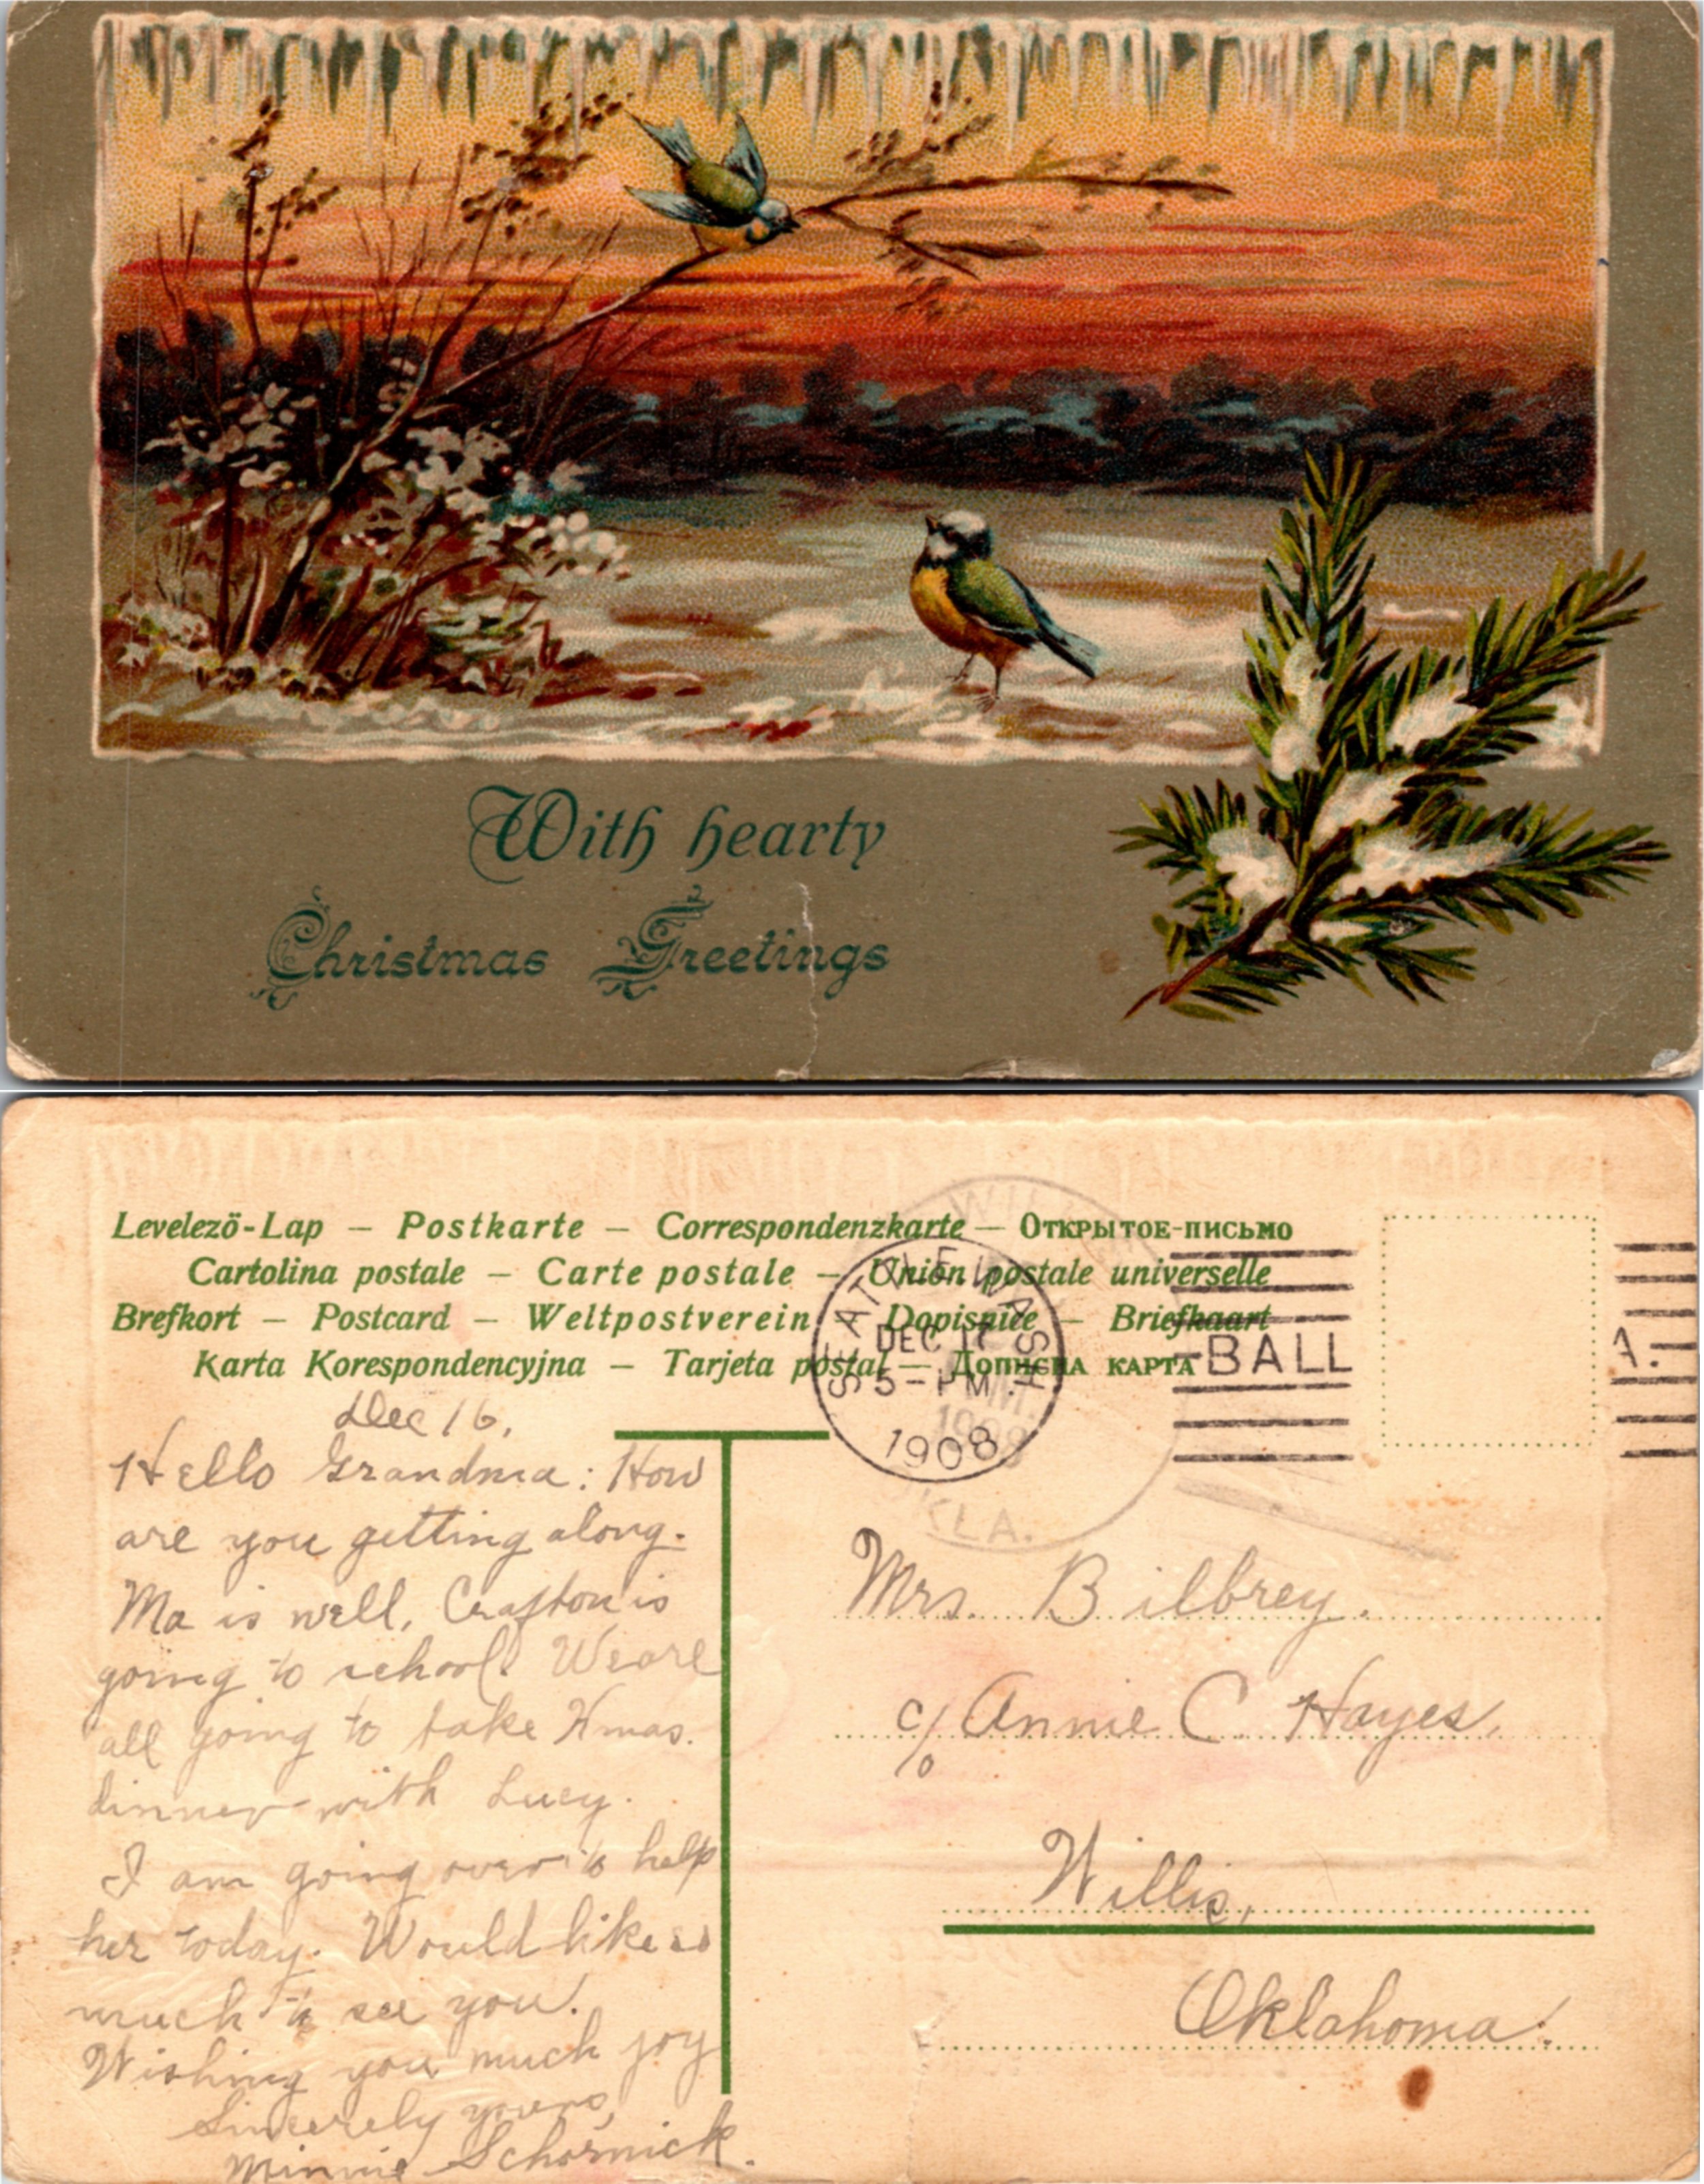 With hearty
Christmas Greetings
Levelezö-Lap — Postkarte — Correspondenzkarte — Открытое-письмо
Cartolina postale — Carte postale — Union postale universelle
Brefkort — Postcard — Weltpostverein — Dopisnice — Briefkaart
Karta Korespondencyjna — Tarjeta postal — Дописна карта
SEATTLE WASH.
DEC 17
5-PM
1908
WILLIS
OKLA.
BALL
A.
Dec 16,
Hello Grandma: How
are you getting along.
Ma is well, Crafton is
going to school. We are
all going to take Xmas.
dinner with Lucy.
I am going over to help
her today. Would like so
much to see you.
Wishing you much joy
Sincerely yours,
Minnie Schornick.
Mrs. Bilbrey.
c/o Annie C. Hayes,
Willis,
Oklahoma.